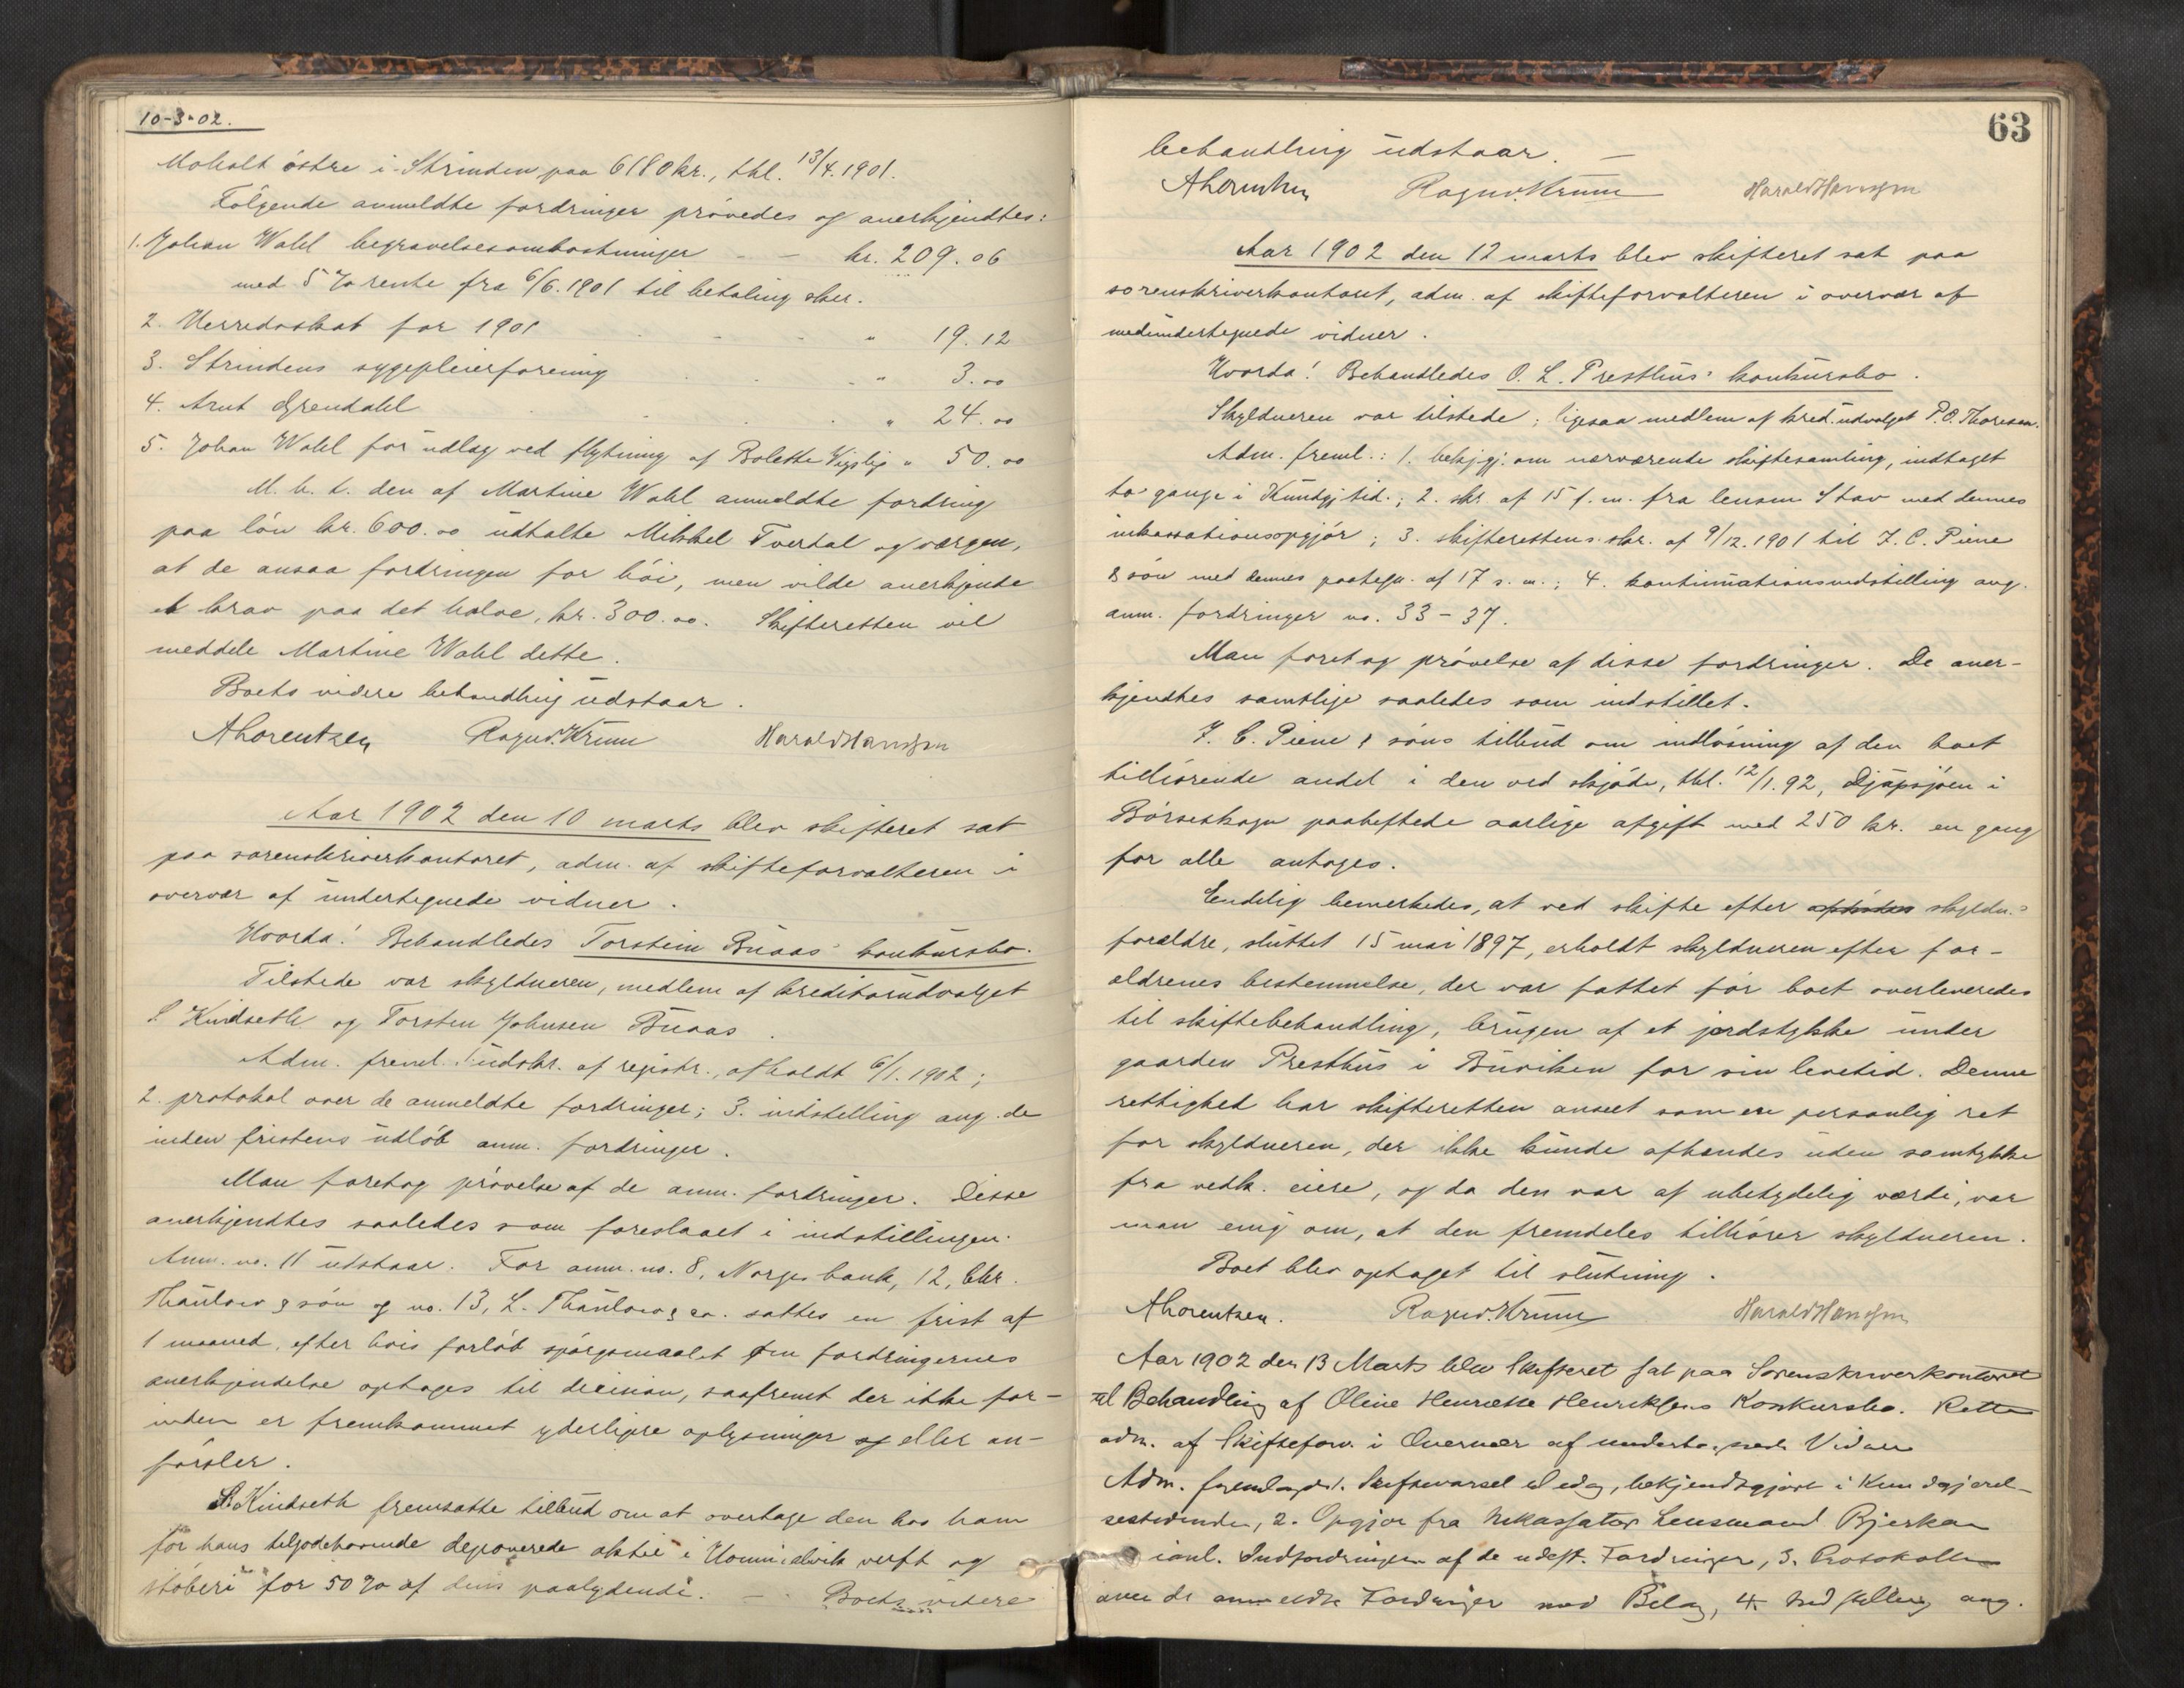 10-3-02.
Moholt østre i Strinden paa 6180 kr., thl. 13/4.1901.
Følgende anmeldte fordringer prøvedes og anerkjendtes:
1. Johan Wahl begravelsesomkostninger - - kr. 209.06
med 5 % rente fra 6/6.1901 til betaling sker.
2. Herredsskat for 1901 " 19.12
3. Strindens sygepleierforening " 3.00
4. Arnt Grendahl " 24.00
5. Johan Wahl for udlag ved flytning af Bolette Vigslip " 50.00
M. h. t. den af Martine Wahl anmeldte fordring
paa løn kr. 600.00 udtalte Mikkel Tvertal og vergen,
at de ansaa fordringen for høi, men vilde anerkjende
et krav paa det halve, kr. 300.00. Skifteretten vil
meddele Martine Wahl dette.
Boets videre behandling udstaar.
ALorentzen Ragnv. Krum Harald Hansen
Aar 1902 den 10 marts blev skifteret sat
paa sorenskriverkontoret, adm. af skifteforvalteren i
overvær af undertegnede vidner.
Hvorda! Behandledes Torstein Buaas' konkursbo.
Tilstede var skyldneren, medlem af kreditorudvalget
S. Kindseth og Torsten Johnsen Buaas.
Adm. freml. 1. udskr. af registr., afholdt 6/1.1902;
2. protokol over de anmeldte fordringer; 3. indstilling ang. de
inden fristens udløb anm. fordringer.
Man foretog prøvelse af de anm. fordringer. Disse
anerkjendtes saaledes som foreslaaet i indstillingen.
Anm. no. 11 udstaar. For anm. no. 8, Norges bank, 12, Chr.
Thaulow & søn og no. 13, L. Thaulow & co. sattes en frist af
1 maaned, efter hvis forløb spørgsmaalet om fordringernes
anerkjendelse optages til decision, saafremt der ikke for-
inden er fremkommet yderligere oplysninger og eller an-
førsler.
S. Kindseth fremsatte tilbud om at overtage den hos ham
for hans tilgodehavende deponerede aktie i Hommelvik verft og
støberi for 50 % af dens paalydende. - Boets videre
63
behandling udstaar. -
ALorentzen Ragnv. Krum Harald Hansen
Aar 1902 den 12 marts blev skifteret sat paa
sorenskriverkontoret, adm. af skifteforvalteren i overvær af
medundertegnede vidner.
Hvorda! Behandledes O. L. Presthus' konkursbo.
Skyldneren var tilstede; ligesaa medlem af kred.udvalget P. O. Thoresen.
Adm. freml.: 1. bekjgj. om nærværende skiftesamling, indtaget
to gange i Kundgj.tid.; 2. skr. af 15 f. m. fra lensm. Stav med dennes
inkassationsopgjør; 3. skifterettens skr. af 9/12.1901 til J. C. Piene
& søn med dennes paategn. af 17 s. m.; 4. kontinuationsindstilling ang.
anm. fordringer no. 33-37.
Man foretog prøvelse af disse fordringer. De aner-
kjendtes samtlige saaledes som indstillet.
J. C. Piene & søns tilbud om indløsning af den boet
tilhørende andel i den ved skjøde, thl. 12/1.92, Djupsjøen i
Børseskogn paaheftede aarlige afgift med 250 kr. en gang
for alle antoges.
Endelig bemerkedes, at ved skifte efter skyldn.s
forældre, sluttet 15 mai 1897, erholdt skyldneren efter for-
ældrenes bestemmelse, der var fattet før boet overleveredes
til skiftebehandling, brugen af et jordstykke under
gaarden Presthus i Buviken for sin levetid. Denne
rettighed har skifteretten anseet som en personlig ret
for skyldneren, der ikke kunde afhændes uden samtykke
fra vedk. eiere, og da den var af ubetydelig værdi, var
man enig om, at den fremdeles tilhører skyldneren.
Boet blev optaget til slutning.
ALorentzen. Ragnv. Krum Harald Hansen
Aar 1902 den 13 Marts blev Skifteret sat paa Sorenskriverkontoret
til Behandling af Oline Henriette Henriksens Konkursbo. Retten
adm. af Skifteforv. i Overvær af undertegnede Vidner
Adm. fremlagde 1. Skiftevarsel til idag, bekjendtgjort i Kundgjørel-
sestidende, 2. Opgjør fra Inkassator Lensmand Bjerkan
ianl. Indfordringen af de udest. Fordringer, 3. Protokollen
over de anmeldte Fordringer med Bilag, 4. Indstilling ang.